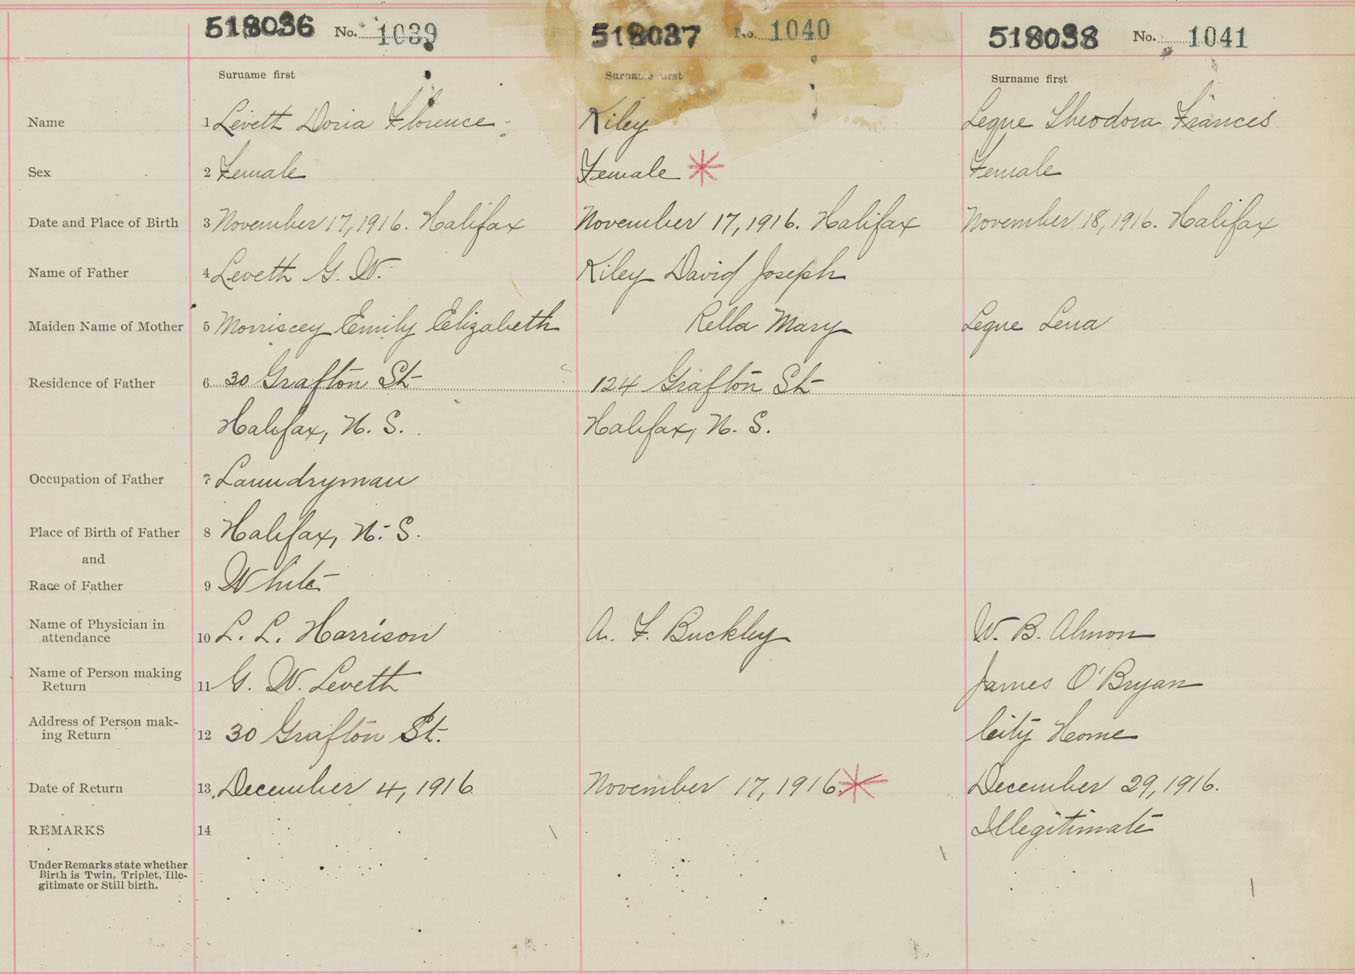 518036 No. 1039 518037 No. 1040 518038 No. 1041
Surname first Surname first Surname first
Name 1 Levett Doria Florence Kiley Legue Theodora Frances
Sex 2 Female Female Female
Date and Place of Birth 3 November 17, 1916. Halifax November 17, 1916. Halifax November 18, 1916. Halifax
Name of Father 4 Leveth G. W. Kiley David Joseph
Maiden Name of Mother 5 Morriscey Emily Elizabeth Rella Mary Legue Lena
Residence of Father 6 30 Grafton St. 124 Grafton St.
Halifax, N. S. Halifax, N. S.
Occupation of Father 7 Laundryman
Place of Birth of Father 8 Halifax, N. S.
and
Race of Father 9 White
Name of Physician in
attendance 10 L. L. Harrison A. F. Buckley W. B. Almon
Name of Person making
Return 11 G. W. Leveth James O'Bryan
Address of Person mak-
ing Return 12 30 Grafton St. City Home
Date of Return 13 December 4, 1916 November 17, 1916. December 29, 1916.
REMARKS 14 Illegitimate
Under Remarks state whether
Birth is Twin, Triplet, Ille-
gitimate or Still birth.